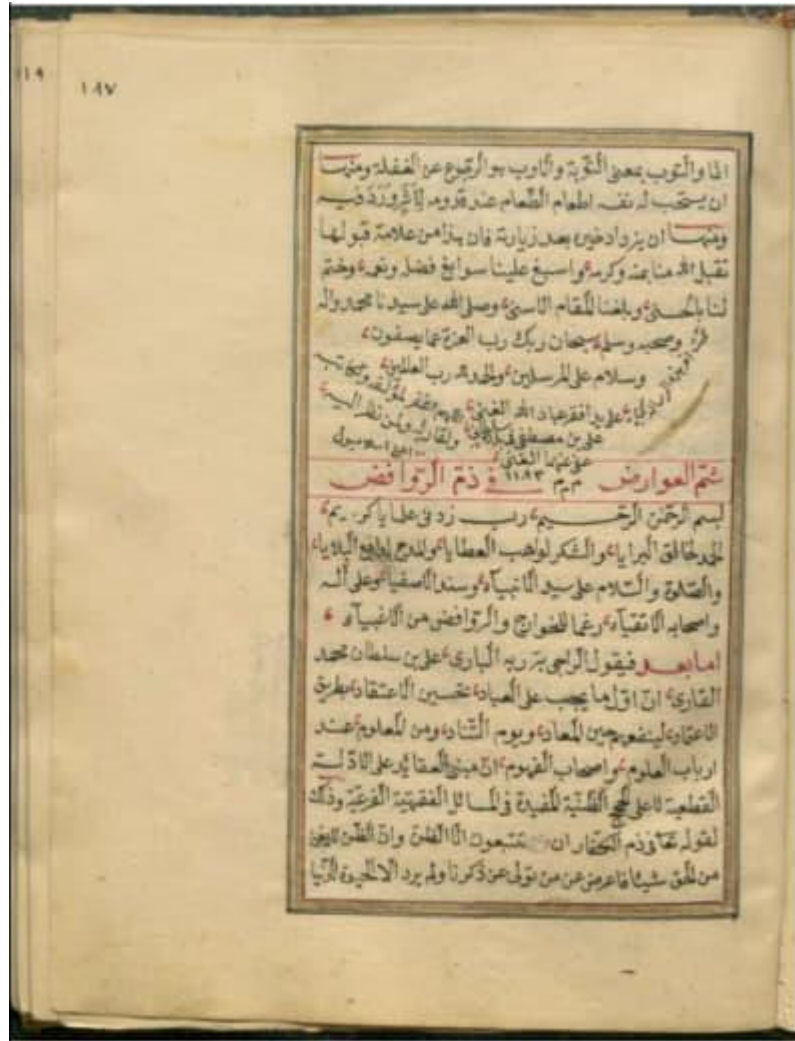 ١١٩
١٨٧
والتوب بمعنى التوبة والاوب هو الرجوع عن الغفلة ومنها
ان يستحب له نفسه اطعام الطعام عند قدومه لاثر ورد فيه
ومنها ان يزداد خيره بعد زيارته فان هذا من علامة قبولها
تقبل الله منا بمنه وكرمه واسبغ علينا سوابغ فضله ونعمه وختم
لنا بالحسنى وبلغنا المقام الاسنى وصلى الله على سيدنا محمد واله
وصحبه وسلم سبحان ربك رب العزة عما يصفون
وسلام على المرسلين والحمد لله رب العالمين
على يد افقر عباد الله الغني
علي بن مصطفى
ولقارئه ولمن نظر اليه
عفى عنهما الغني
م م ١١٨٣
شم العوارض في ذم الروافض
بسم الرحمن الرحيم رب زدني علما يا كريم
الحمد لخالق البرايا والشكر لواهب العطايا والمدح لدافع البلايا
والصلوة والسلام على سيد الانبياء وسند الاصفياء وعلى آله
واصحابه الاتقياء رغما للخوارج والروافض من الاغبياء
اما بعد فيقول الراجي بر ربه الباري علي بن سلطان محمد
القاري ان اول ما يجب على العباد تحسين الاعتقاد بطريق
الاعتماد لينفعهم حين المعاد ويوم التناد ومن المعلوم عند
ارباب العلوم واصحاب الفهوم ان مبنى العقائد على الادلة
القطعية لا على الحجج الظنية المفيدة في المسائل الفقهية الفرعية وذلك
لقوله تعالى في ذم الكفار ان يتبعون الا الظن وان الظن لا يغني
من الحق شيئا فاعرض عن من تولى عن ذكرنا ولم يرد الا الحيوة الدنيا